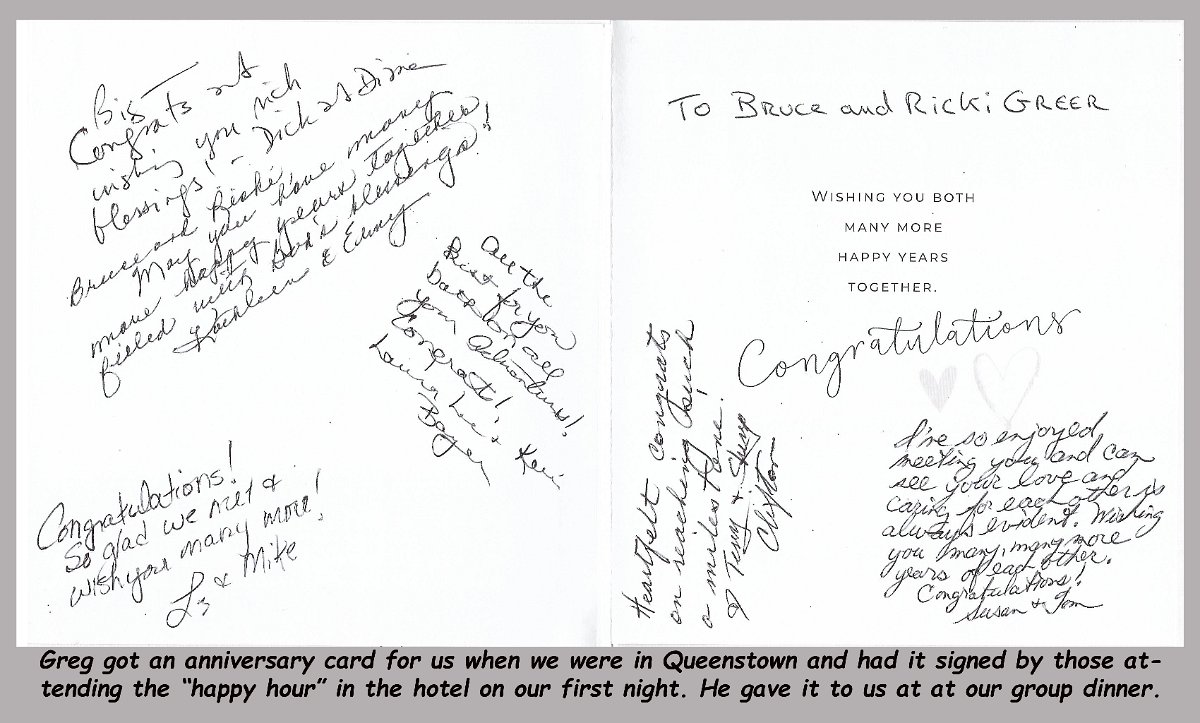 Big
Congrats and
wishing you rich
blessings! - Dick and Diane
Bruce and Ricki,
May you have many
more happy years together
filled with God's blessings!
Kathleen & Emmy
All the
Best for you
both on all
your adventures!
Congrats!
Laura Lei &
Congratulations!
So glad we met &
wish you many more!
Liz & Mike
TO BRUCE and RICKI GREER
WISHING YOU BOTH
MANY MORE
HAPPY YEARS
TOGETHER.
Congratulations
Heartfelt congrats
on reaching such
a milestone!
Terry &
Clifton
I've so enjoyed
meeting you and can
see your love and
caring for each other is
always evident. Wishing
you many, many more
years of each other.
Congratulations!
Susan & Tom
Greg got an anniversary card for us when we were in Queenstown and had it signed by those at-
tending the “happy hour” in the hotel on our first night. He gave it to us at at our group dinner.